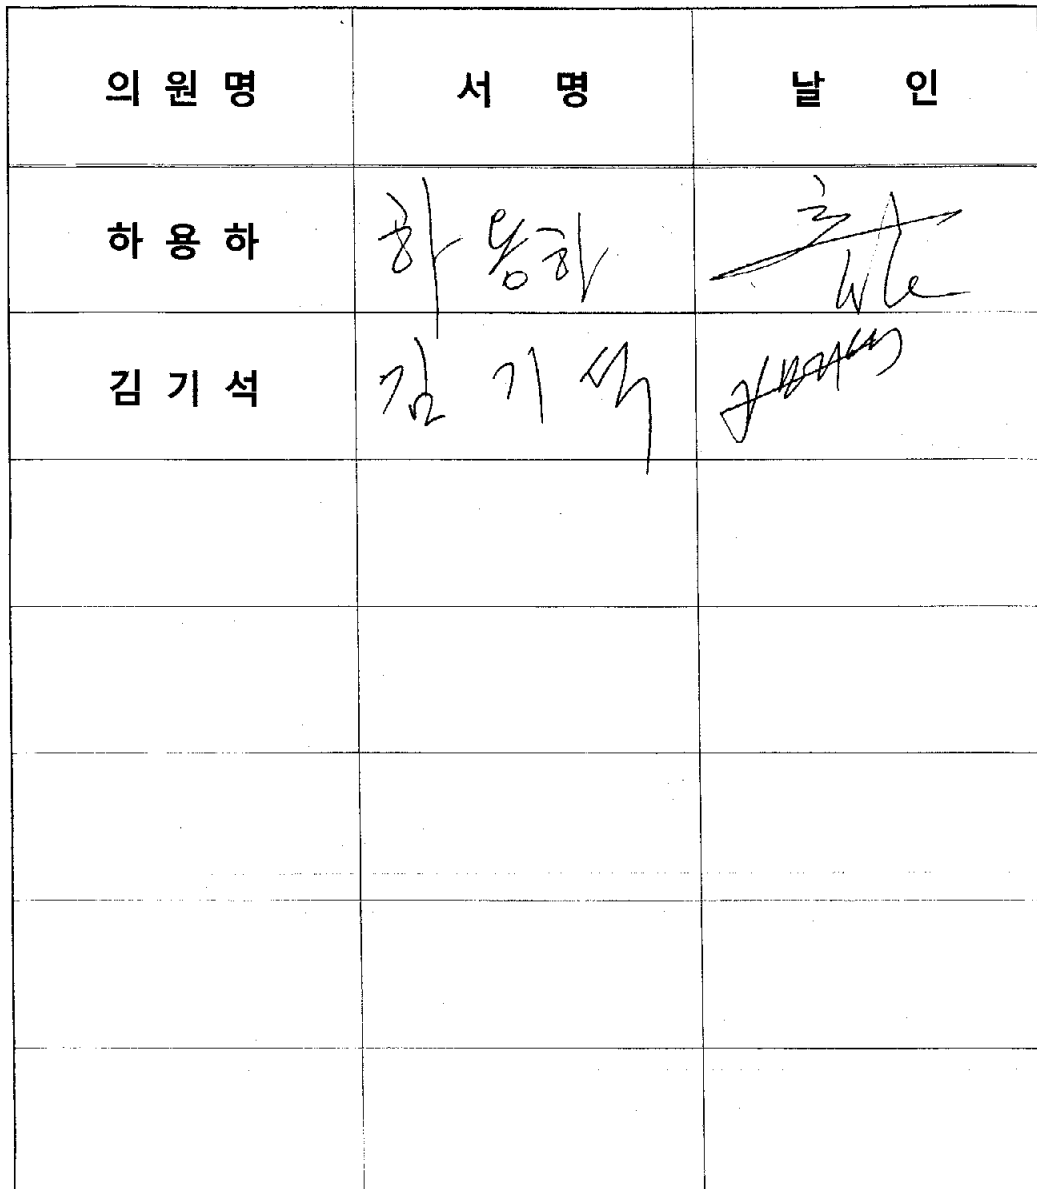 의 원 명 서 명 날 인
하 용 하 하 용 하
김 기 석 김 기 석